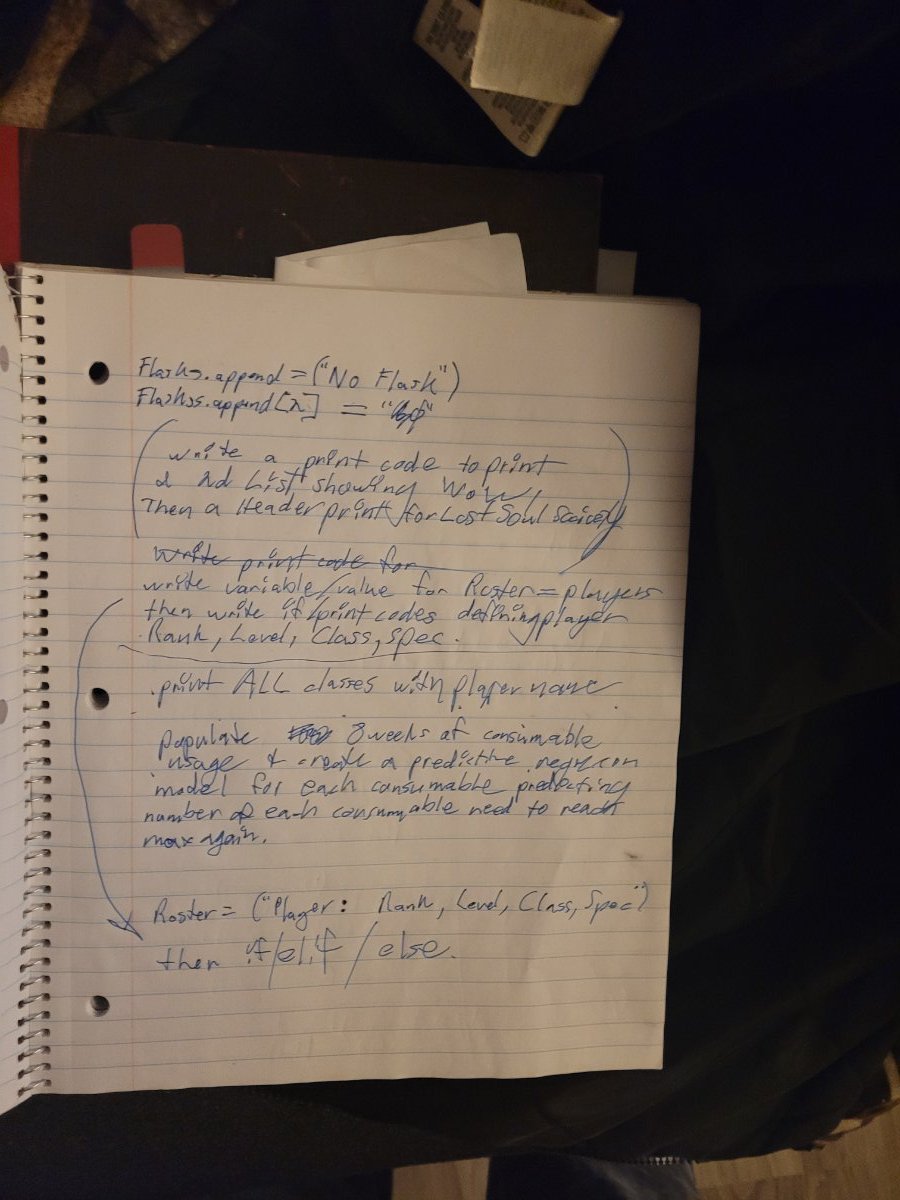 Flasks.append = ("No Flask")
Flashs.append[x] = "
write a print code to print
a 2d List showing WoW,
Then a Header print for Lost Soul Society
Write print code for
write variable/value for Roster = players
then write if/print codes defining player
Rank, Level, Class, Spec.
.print ALL classes with player name
populate 8 weeks of consumable
usage & create a predictive regrecon
model for each consumable predecting
number of each consumable need to reach
max again.
Roster = ("Player: Rank, Level, Class, Spec")
then if/elif/else.